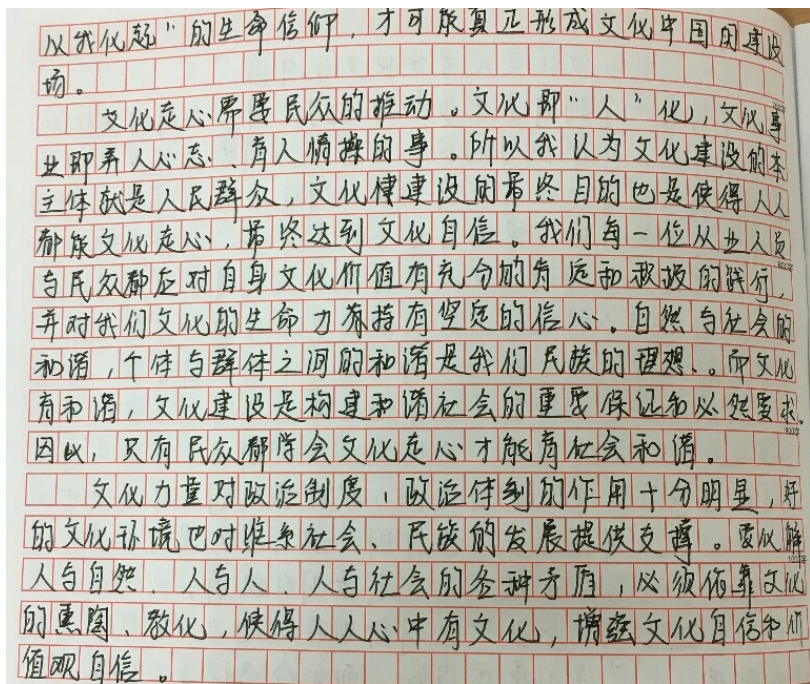 以我化起”的生命信仰，才可能真正形成文化中国因建设
场。
文化走心需要民众的推动。文化即“人”化，文化事
业即养人心态、育人情操的事。所以我认为文化建设的本
主体就是人民群众，文化建设的最终目的也是使得人人
都能文化走心，最终达到文化自信。我们每一位从业人员
与民众都应对自身文化价值有充分的肯定和积极的践行，
并对我们文化的生命力有持有坚定的信心。自然与社会的
和谐，个体与群体之间的和谐是我们民族的理想。而文化
育和谐，文化建设是构建和谐社会的重要保证和必然要求。
因此，只有民众都学会文化走心才能有社会和谐。
文化力量对政治制度，政治体制的作用十分明显，好
的文化环境也对维系社会、民族的发展提供支撑。要化解
人与自然、人与人、人与社会的各种矛盾，必须依靠文化
的熏陶、教化，使得人人心中有文化，增强文化自信和价
值观自信。